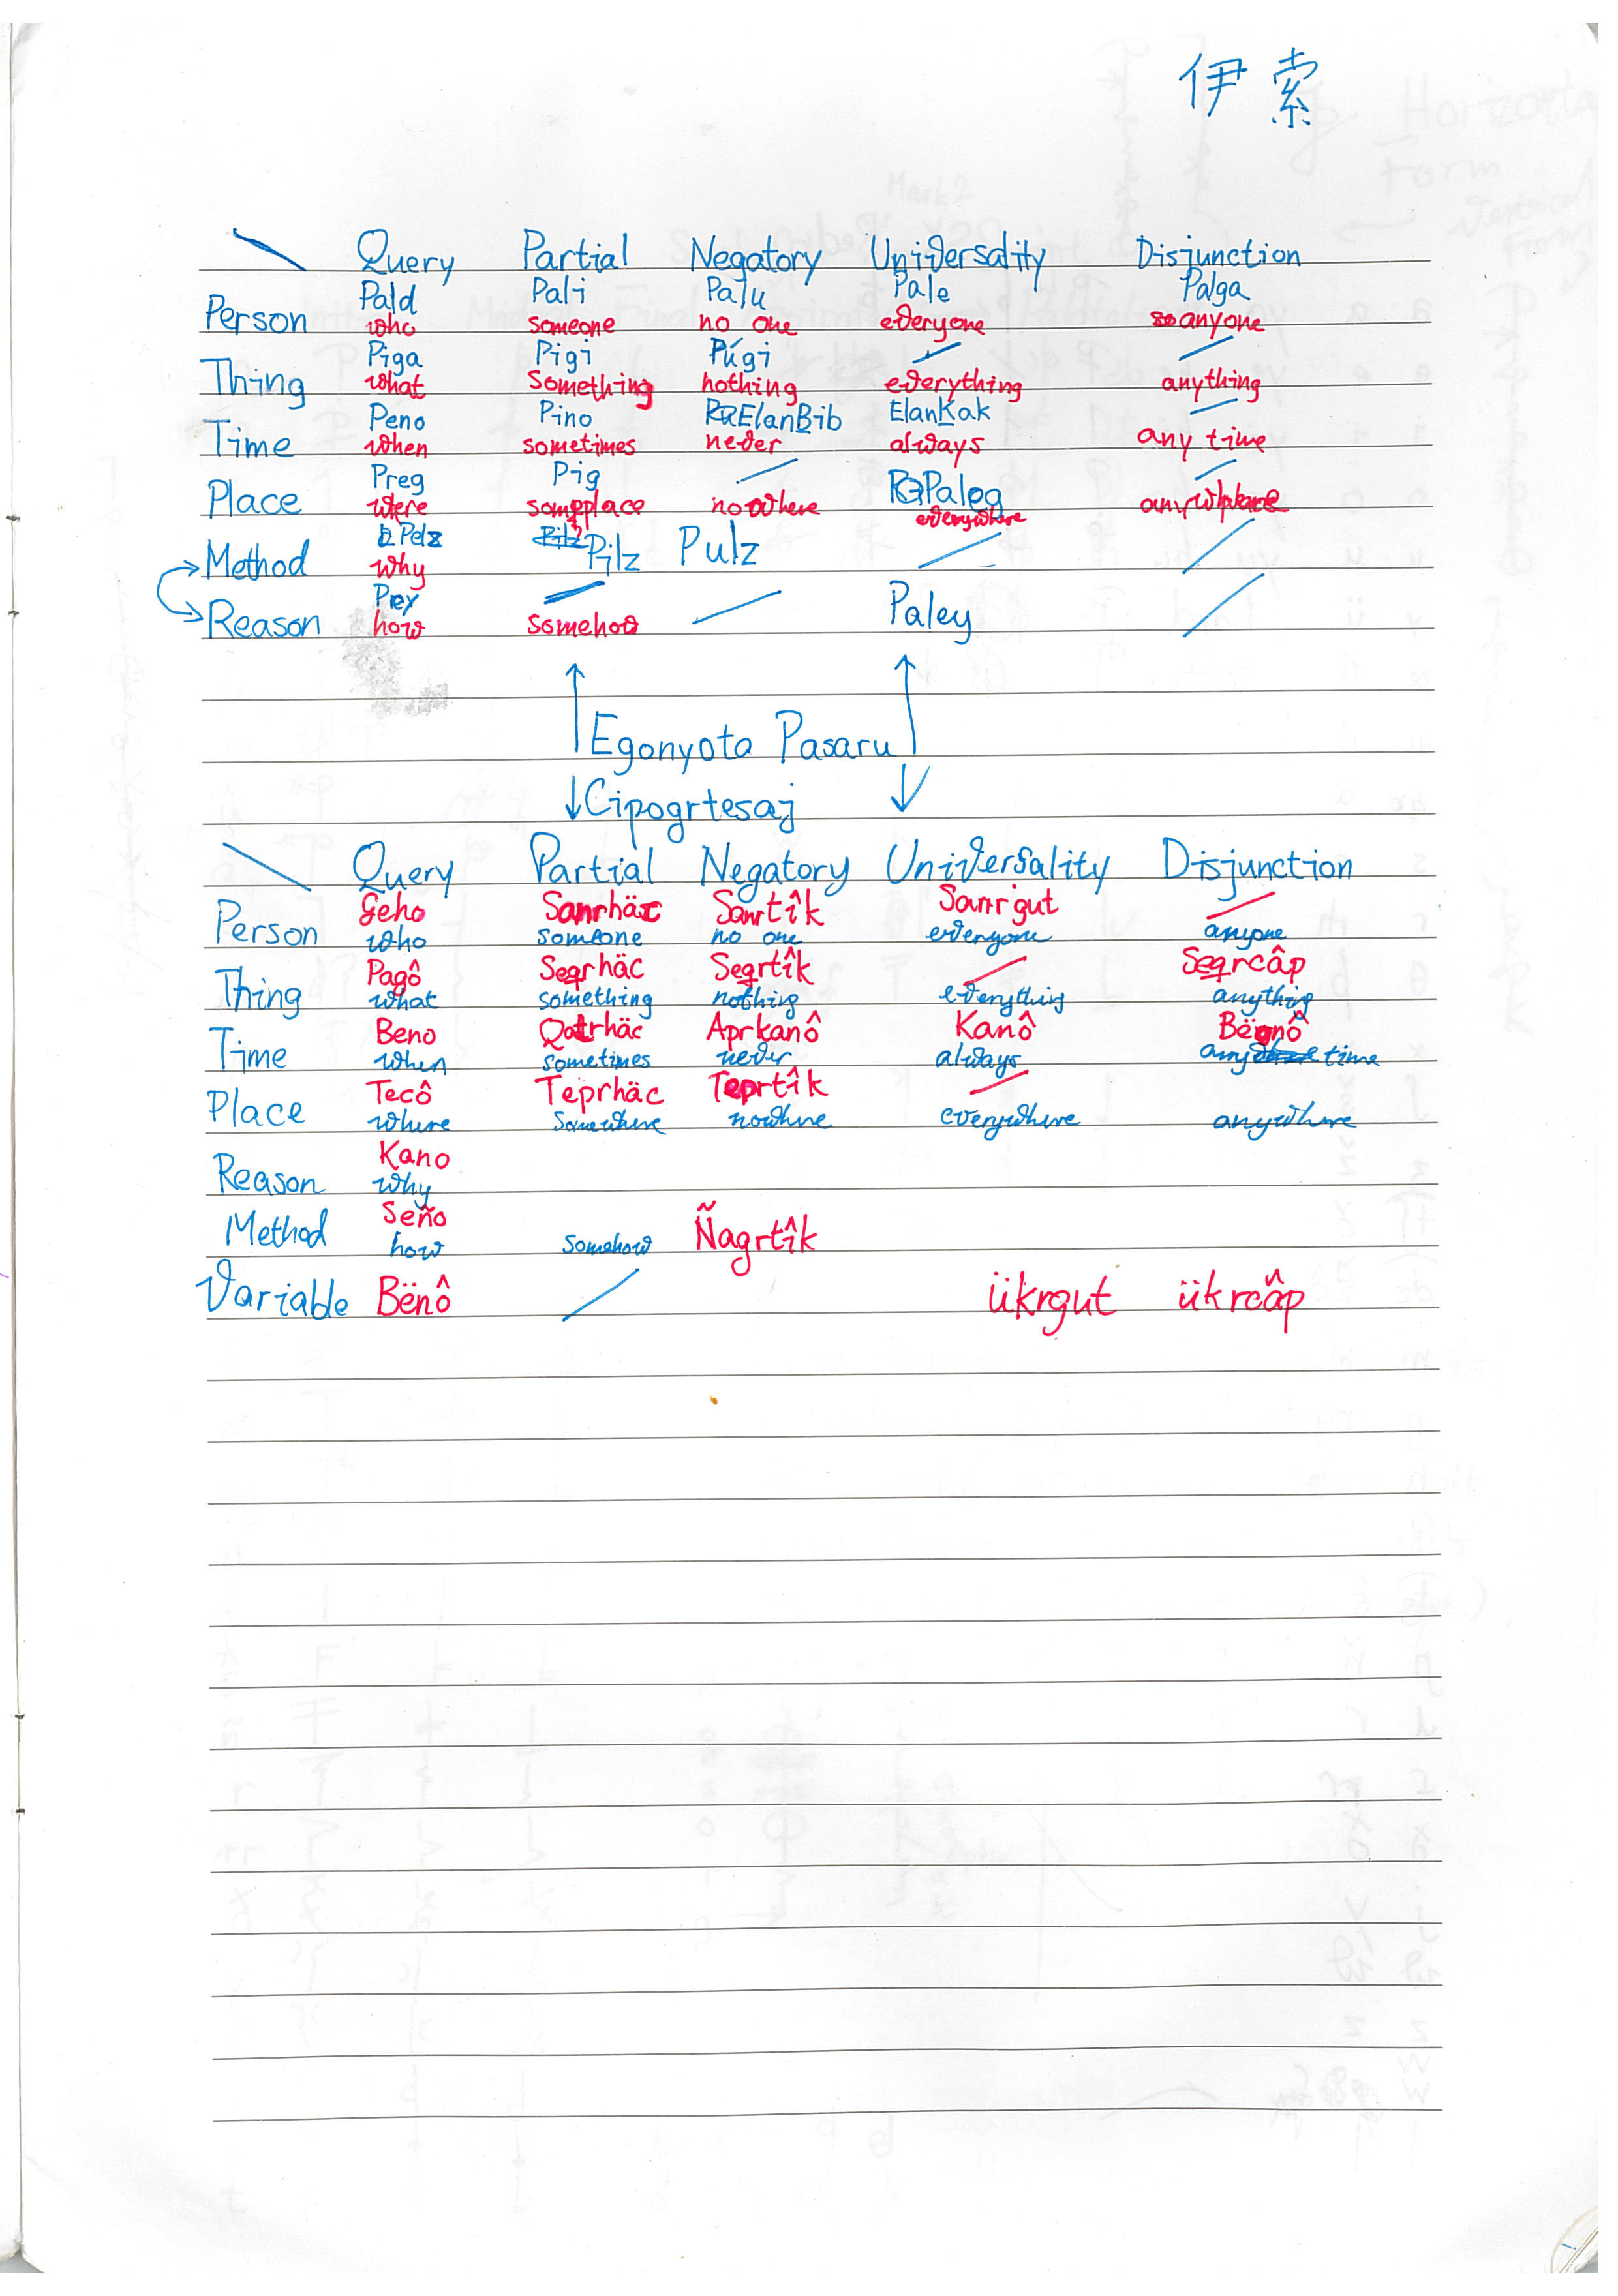 伊索
Query Partial Negatory Universality Disjunction
Pald Pali Palu Pale Palga
Person who someone no one everyone anyone
Piga Pigi Púgi
Thing what something nothing everything anything
Peno Pino ElanBib ElanKak
Time when sometimes never always any time
Preg Pig Paleg
Place were someplace nowhere everywhere anywhere
Pelz Pilz Pulz
Method why
Pey Paley
Reason how somehow
Egonyota Pasaru
Cipogrtesaj
Query Partial Negatory Universality Disjunction
Geho Sanrhäc Sanrtîk Sanrgut
Person who someone no one everyone anyone
Pagô Seqrhäc Seqrtîk Seqrcâp
Thing what something nothing everything anything
Beno Qatrhäc Aprkanô Kanô
Time when sometimes never always any time
Tecô Teprhäc Teprtîk
Place where somewhere nowhere everywhere anywhere
Kano
Reason why
Seño Ñagrtîk
Method how somehow
Variable Bënô ükrgut ükrcâp